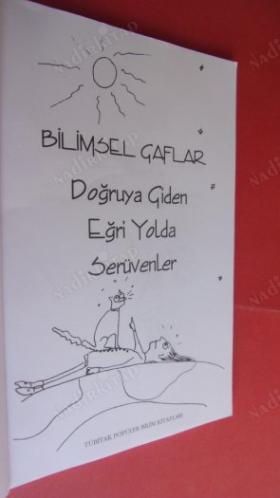 BİLİMSEL GAFLAR
Doğruya Giden
Eğri Yolda
Serüvenler
TÜBİTAK POPÜLER BİLİM KİTAPLARI